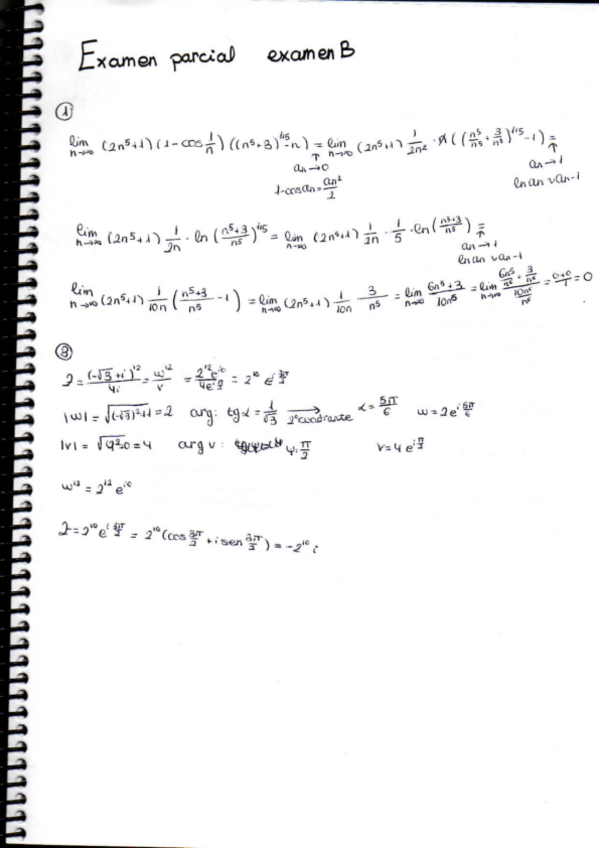 Examen parcial examen B
①
lim n→∞ (2n⁵+1) (1-cos 1/n) ((n⁵+3)^1/5 - n) = lim n→∞ (2n⁵+1) 1/2n² · n ((n⁵/n⁵ + 3/n⁵)^1/5 - 1) =
↑ an→0
1-cos an = an²/2
↑ an→1
ln an ~ an-1
lim n→∞ (2n⁵+1) 1/2n · ln (n⁵+3/n⁵)^1/5 = lim n→∞ (2n⁵+1) 1/2n · 1/5 · ln (n⁵+3/n⁵) =
↑ an→1
ln an ~ an-1
lim n→∞ (2n⁵+1) 1/10n (n⁵+3/n⁵ - 1) = lim n→∞ (2n⁵+1) 1/10n · 3/n⁵ = lim n→∞ 6n⁵+3/10n⁶ = lim n→∞ (6n⁵/n⁶ + 3/n⁶)/(10n⁶/n⁶) = 0+0/1 = 0
③
z = (-√3+i)¹²/4i = w¹²/v = 2¹² e^i0/4e^iπ/2 = 2¹⁰ e^i3π/2
|w| = √(-√3)²+1 = 2 arg: tg α = 1/√3 → 2º cuadrante α = 5π/6 w = 2e^i5π/6
|v| = √4²+0 = 4 arg v: ψ = π/2 v = 4e^iπ/2
w¹² = 2¹² e^i0
z = 2¹⁰ e^i3π/2 = 2¹⁰ (cos 3π/2 + i sen 3π/2) = -2¹⁰ i